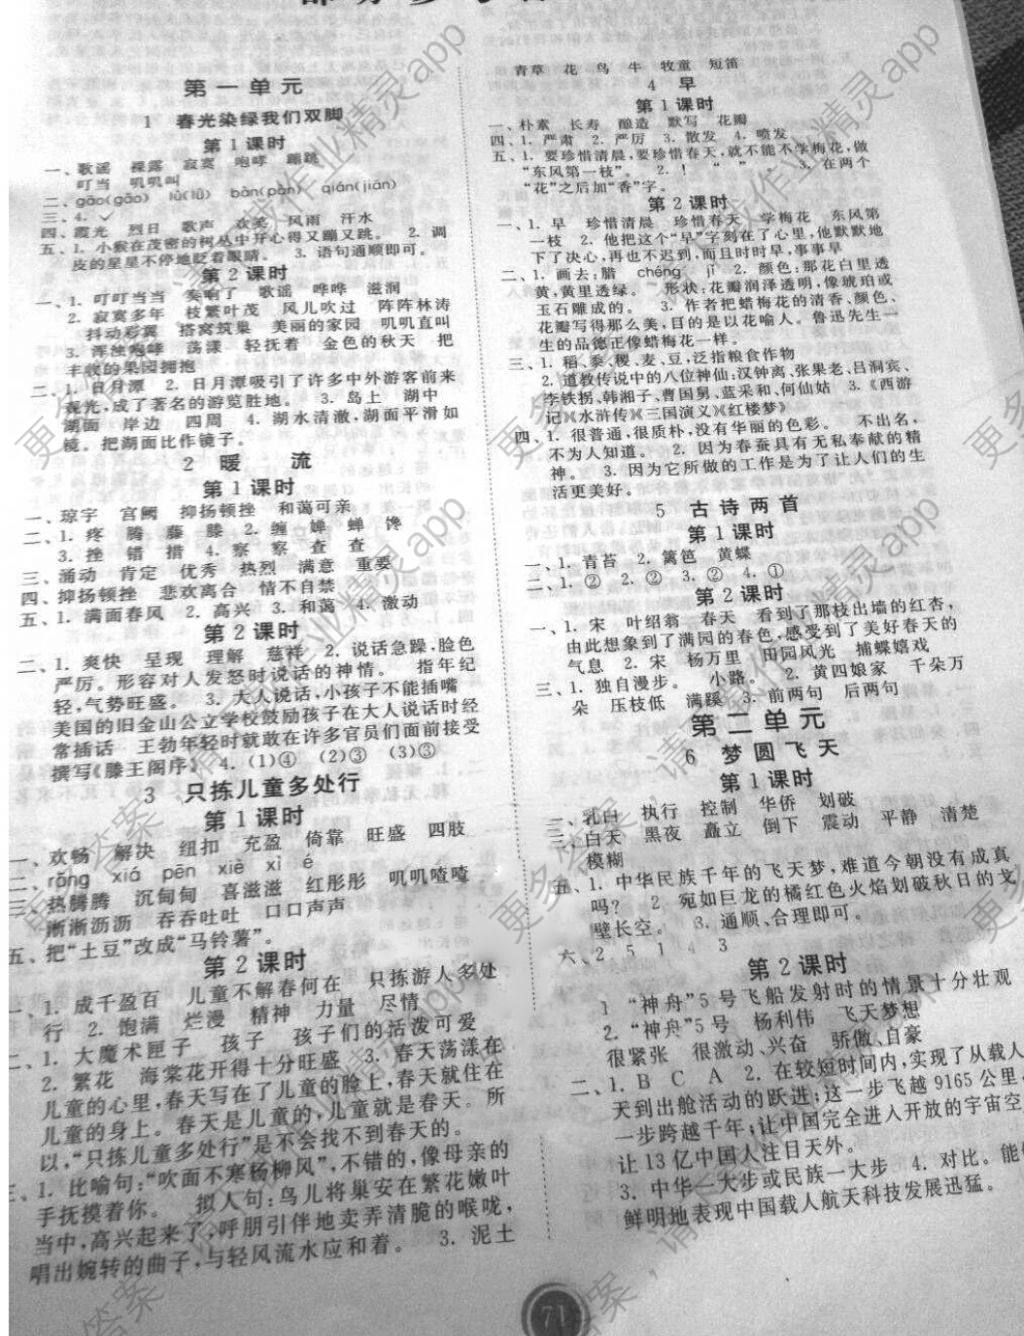 第一单元
1 春光染绿我们双脚
第1课时
一、歌谣 裸露 寂寞 咆哮 蹦跳
叮当 叽叽叫
二、gāo(gāo) lù(lǜ) bàn(pàn) qián(jiān)
三、4. ✓
四、霞光 烈日 歌声 欢笑 风雨 汗水
五、1. 小猴在茂密的树丛中开心得又蹦又跳。 2. 调
皮的星星不停地眨着眼睛。 3. 语句通顺即可。
第2课时
一、1. 叮叮当当 奏响了 歌谣 哗哗 滋润
2. 寂寞多年 枝繁叶茂 风儿吹过 阵阵林涛
抖动彩翼 搭窝筑巢 美丽的家园 叽叽直叫
3. 浑浊咆哮 荡漾 轻抚着 金色的秋天 把
丰收的果园拥抱
二、1. 日月潭 2. 日月潭吸引了许多中外游客前来
观光,成了著名的游览胜地。 3. 岛上 湖中
湖面 岸边 四周 4. 湖水清澈,湖面平滑如
镜。把湖面比作镜子。
2 暖 流
第1课时
一、琼宇 宫阙 抑扬顿挫 和蔼可亲
二、1. 疼 腾 藤 滕 2. 缠 婵 蝉 馋
3. 挫 错 措 4. 察 察 查 查
三、涌动 肯定 优秀 热烈 满意 重要
四、抑扬顿挫 悲欢离合 情不自禁
五、1. 满面春风 2. 高兴 3. 和蔼 4. 激动
第2课时
二、1. 爽快 呈现 理解 慈祥 2. 说话急躁,脸色
严厉。形容对人发怒时说话的神情。 指年纪
轻,气势旺盛。 3. 大人说话,小孩子不能插嘴
美国的旧金山公立学校鼓励孩子在大人说话时经
常插话 王勃年轻时就敢在许多官员们面前接受
撰写《滕王阁序》 4. (1)④ (2)③ (3)③
3 只拣儿童多处行
第1课时
一、欢畅 解决 纽扣 充盈 倚靠 旺盛 四肢
二、rǒng xiá pēn xiè xì é
三、热腾腾 沉甸甸 喜滋滋 红彤彤 叽叽喳喳
淅淅沥沥 吞吞吐吐 口口声声
五、把“土豆”改成“马铃薯”。
第2课时
一、1. 成千盈百 儿童不解春何在 只拣游人多处
行 2. 饱满 烂漫 精神 力量 尽情
二、1. 大魔术匣子 孩子 孩子们的活泼可爱
2. 繁花 海棠花开得十分旺盛 3. 春天荡漾在
儿童的心里,春天写在了儿童的脸上,春天就住在
儿童的身上。春天是儿童的,儿童就是春天。所
以,“只拣儿童多处行”是不会找不到春天的。
三、1. 比喻句:“吹面不寒杨柳风”,不错的,像母亲的
手抚摸着你。 拟人句:鸟儿将巢安在繁花嫩叶
当中,高兴起来了,呼朋引伴地卖弄清脆的喉咙,
唱出婉转的曲子,与轻风流水应和着。 3. 泥土
青草 花 鸟 牛 牧童 短笛
4 早
第1课时
一、朴素 长寿 酿造 默写 花瓣
四、1. 严肃 2. 严厉 3. 散发 4. 喷发
五、1. 要珍惜清晨,要珍惜春天,就不能不学梅花,做
“东风第一枝”。 2. ! “ ” 。 3. 在两个
“花”之后加“香”字。
第2课时
一、1. 早 珍惜清晨 珍惜春天 学梅花 东风第
一枝 2. 他把这个“早”字刻在了心里,他默默地
下了决心,再也不迟到,而且时时早,事事早
二、1. 画去:腊 chéng jì 2. 颜色:那花白里透
黄,黄里透绿。 形状:花瓣润泽透明,像琥珀或
玉石雕成的。 3. 作者把蜡梅花的清香、颜色、
花瓣写得那么美,目的是以花喻人。鲁迅先生一
生的品德正像蜡梅花一样。
三、1. 稻、黍、稷、麦、豆,泛指粮食作物
2. 道教传说中的八位神仙:汉钟离、张果老、吕洞宾、
李铁拐、韩湘子、曹国舅、蓝采和、何仙姑 3. 《西游
记》《水浒传》《三国演义》《红楼梦》
四、1. 很普通,很质朴,没有华丽的色彩。 不出名,
不为人知道。 2. 因为春蚕具有无私奉献的精
神。 3. 因为它所做的工作是为了让人们的生
活更美好。
5 古诗两首
第1课时
一、1. 青苔 2. 篱笆 黄蝶
二、1. ② 2. ② 3. ② 4. ①
第2课时
一、1. 宋 叶绍翁 春天 看到了那枝出墙的红杏,
由此想象到了满园的春色,感受到了美好春天的
气息 2. 宋 杨万里 田园风光 捕蝶嬉戏
三、1. 独自漫步。 小路。 2. 黄四娘家 千朵万
朵 压枝低 满蹊 3. 前两句 后两句
第二单元
6 梦圆飞天
第1课时
一、乳白 执行 控制 华侨 划破
三、白天 黑夜 矗立 倒下 震动 平静 清楚
模糊
五、1. 中华民族千年的飞天梦,难道今朝没有成真
吗? 2. 宛如巨龙的橘红色火焰划破秋日的戈
壁长空。 3. 通顺、合理即可。
六、2 5 1 4 3
第2课时
1 “神舟”5号飞船发射时的情景十分壮观
2. “神舟”5号 杨利伟 飞天梦想
很紧张 很激动、兴奋 骄傲、自豪
二、1. B C A 2. 在较短时间内,实现了从载人
天到出舱活动的跃进;这一步飞越9165公里,
一步跨越千年;让中国完全进入开放的宇宙空
让13亿中国人注目天外。
3. 中华一大步或民族一大步 4. 对比。能
鲜明地表现中国载人航天科技发展迅猛。
71
更多答案,请下载作业精灵app